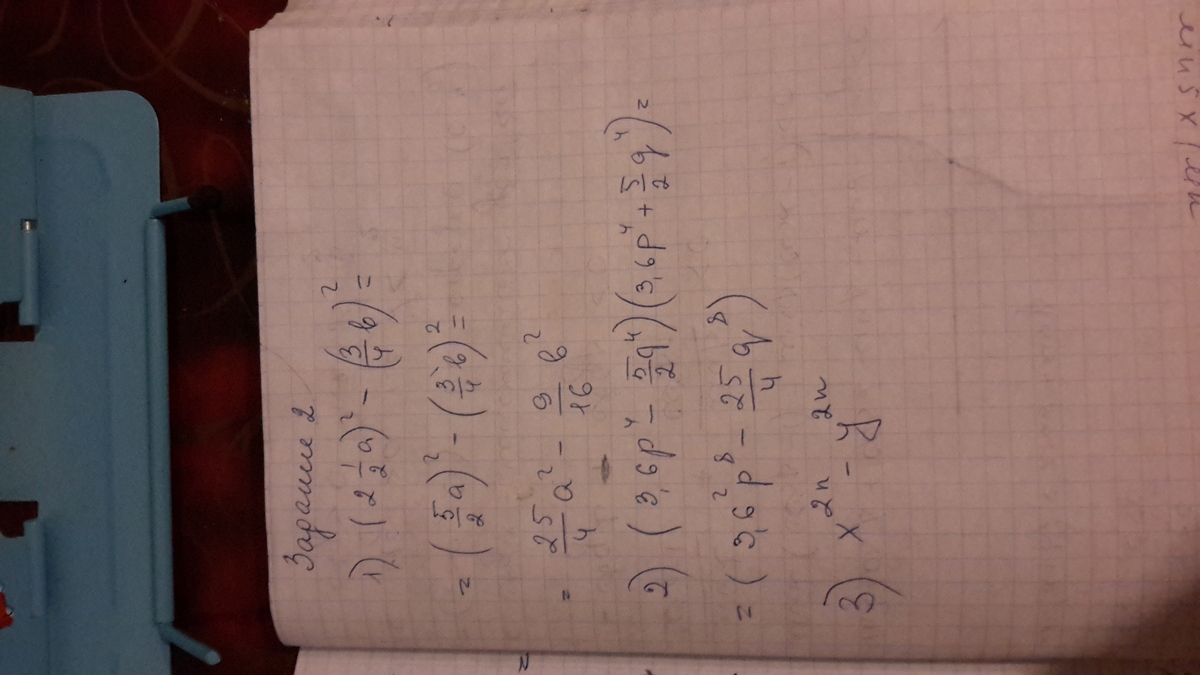 Задание 2
1) (2 1/2 a)² - (3/4 b)² =
= (5/2 a)² - (3/4 b)² =
= 25/4 a² - 9/16 b²
2) (3,6p⁴ - 5/2 q⁴)(3,6p⁴ + 5/2 q⁴) =
= (3,6² p⁸ - 25/4 q⁸)
3) x²ⁿ - y²ⁿ
=